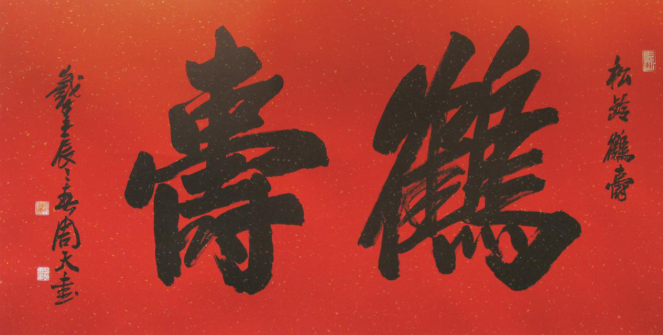 松齡鶴壽
鶴壽
歲壬辰之春周天書